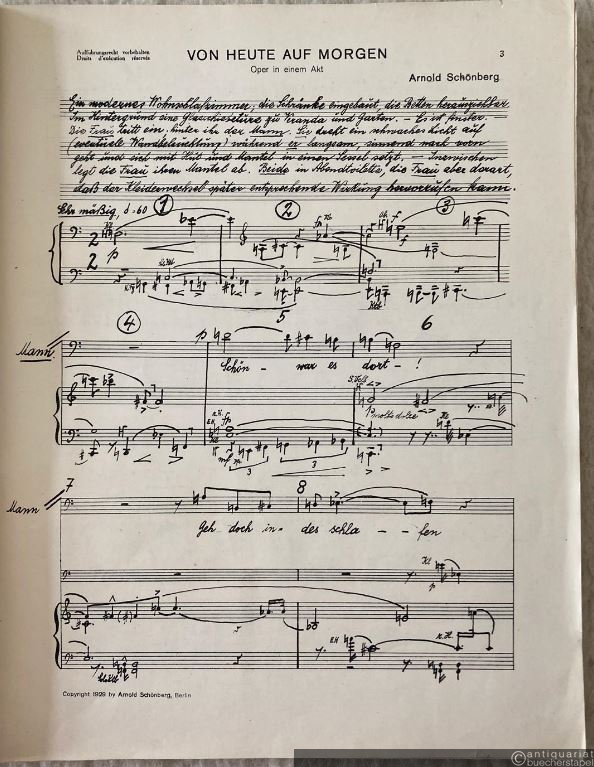 Aufführungsrecht vorbehalten
Droits d'exécution réservés
VON HEUTE AUF MORGEN
3
Oper in einem Akt
Arnold Schönberg
Ein modernes Wohnschlafzimmer; die Schränke eingebaut, die Betten herausziehbar.
Im Hintergrund eine Glasschiebetüre zu Veranda und Garten. – Es ist finster. –
Die Frau tritt ein, hinter ihr der Mann. Sie dreht ein schwaches Licht auf
(eventuelle Wandbeleuchtung) während er langsam, sinnend nach vorn
geht und sich mit Hut und Mantel in einen Sessel setzt. – Inzwischen
legt die Frau ihren Mantel ab. Beide in Abendtoilette, die Frau aber derart,
daß der Kleiderwechsel später entsprechende Wirkung hervorrufen kann.
Sehr mäßig, 60
1 2 3
4 5 6
Mann
Schön - war es dort - !
molto dolce
3 3
7 8
Mann
Geh doch in- des schla - - fen
Copyright 1929 by Arnold Schönberg, Berlin
antiquariat
buecherstapel